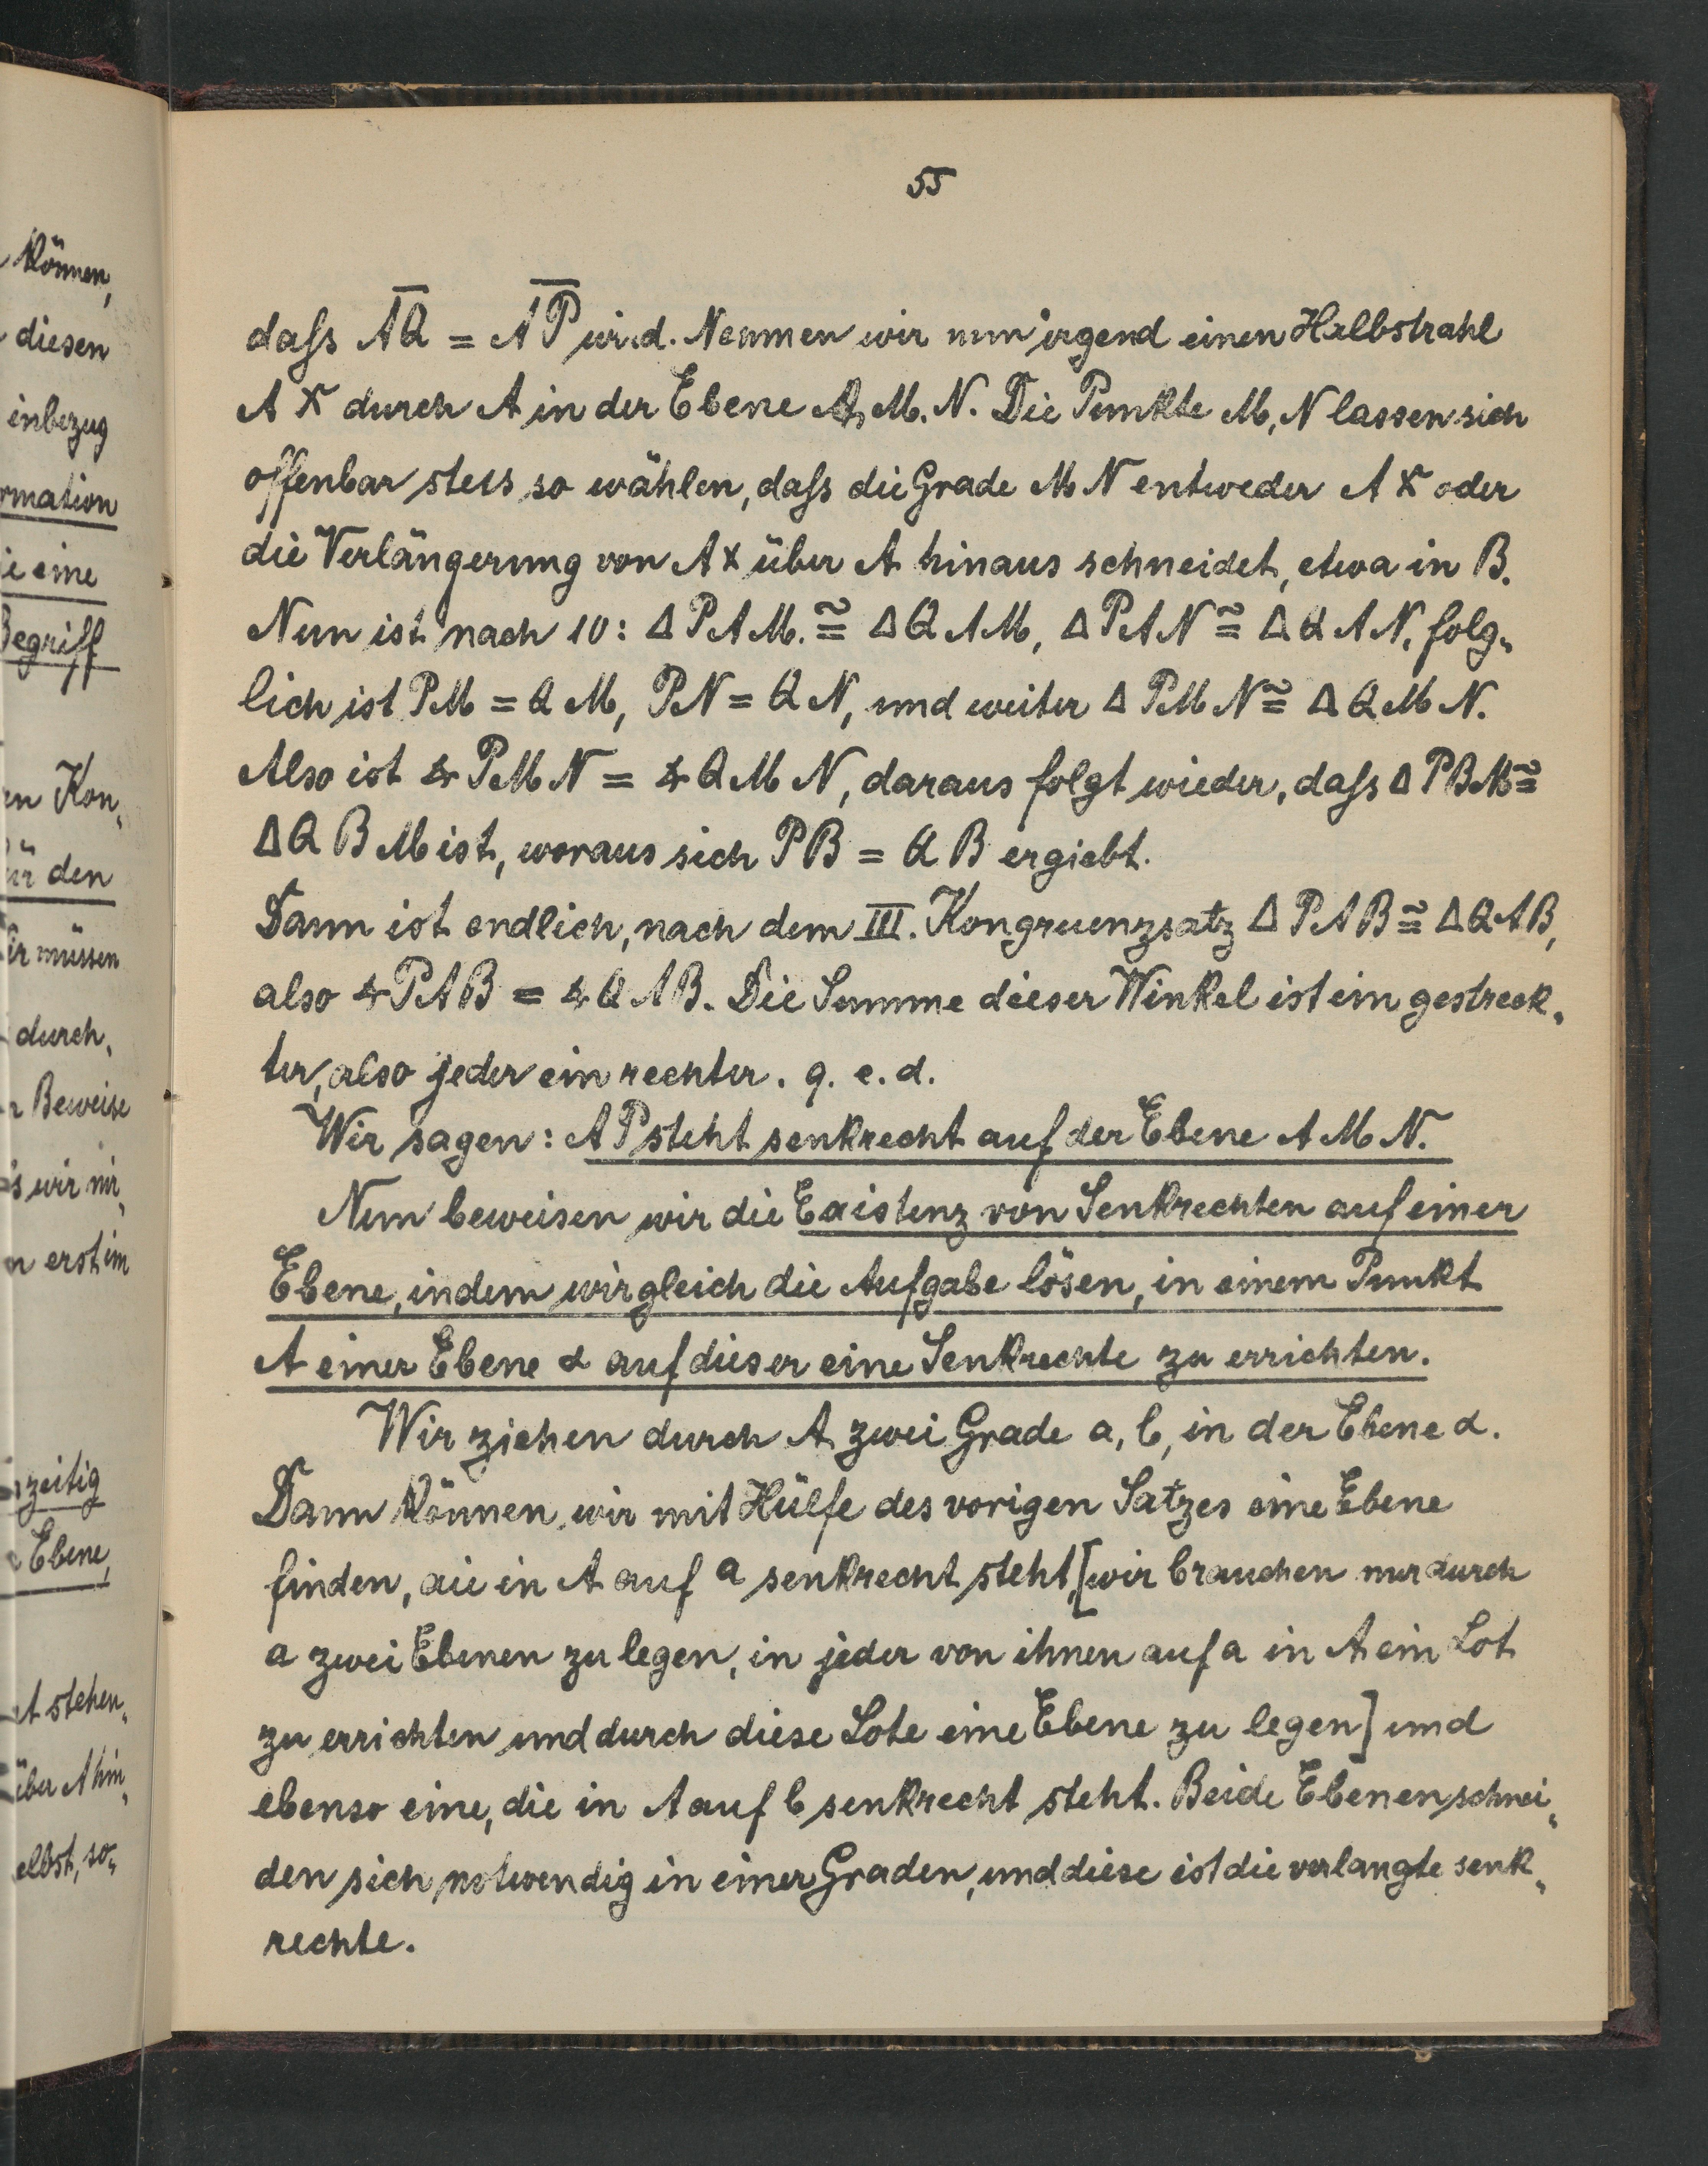 Können,
diesen
inbezug
rmation
ie eine
Begriff
en Kon„
für den
ir müssen
durch„
r Beweise
s wir nir„
n erst im
zeitig
Ebene,
A stehen„
über A hin„
elbst, so„
55
daſs A̅Q̅ = A̅P̅ wird. Nenmen wir nun irgend einen Halbstrahl
A X durch A in der Ebene A, M. N. Die Punkte M, N lassen sich
offenbar stets so wählen, daſs die Grade M N entweder A X oder
die Verlängerung von A X über A hinaus schneidet, etwa in B.
Nun ist nach 10: Δ P A M. ≅ Δ Q A M, Δ P A N ≅ Δ Q A N, folg„
lich ist PM = Q M, PN = Q N, und weiter Δ P M N ≅ Δ Q M N.
Also ist ∡ P M N = ∡ Q M N, daraus folgt wieder, daſs Δ P B M ≅
Δ Q B M ist, woraus sich P B = Q B ergiebt.
Dann ist endlich, nach dem III. Kongruenzsatz Δ P A B ≅ Δ Q A B,
also ∡ P A B = ∡ Q A B. Die Summe dieser Winkel ist ein gestreck„
ter, also jeder ein rechter. q. e. d.
Wir sagen: A P steht senkrecht auf der Ebene A M N.
Nun beweisen wir die Existenz von Senkrechten auf einer
Ebene, indem wir gleich die Aufgabe lösen, in einem Punkt
A einer Ebene α auf dieser eine Senkrechte zu errichten.
Wir ziehen durch A zwei Grade a, b, in der Ebene α.
Dann Können wir mit Hülfe des vorigen Satzes eine Ebene
finden, die in A auf a senkrecht steht, [wir brauchen nur durch
a zwei Ebenen zu legen, in jeder von ihnen auf a in A ein Lot
zu errichten und durch diese Lote eine Ebene zu legen] und
ebenso eine, die in A auf b senkrecht steht. Beide Ebenen schnei„
den sich notwendig in einer Graden, und diese ist die verlangte senk„
rechte.